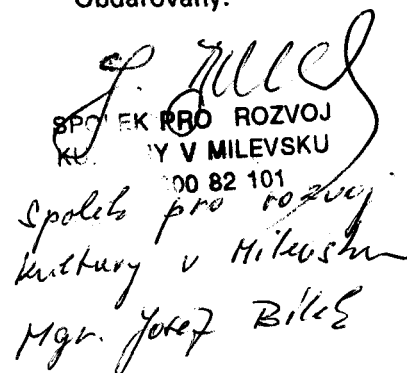 Obdarovaný:
SPOLEK PRO ROZVOJ
KULTURY V MILEVSKU
00 82 101
Spolek pro rozvoj
kultury v Milevsku
Mgr. Josef Bílek